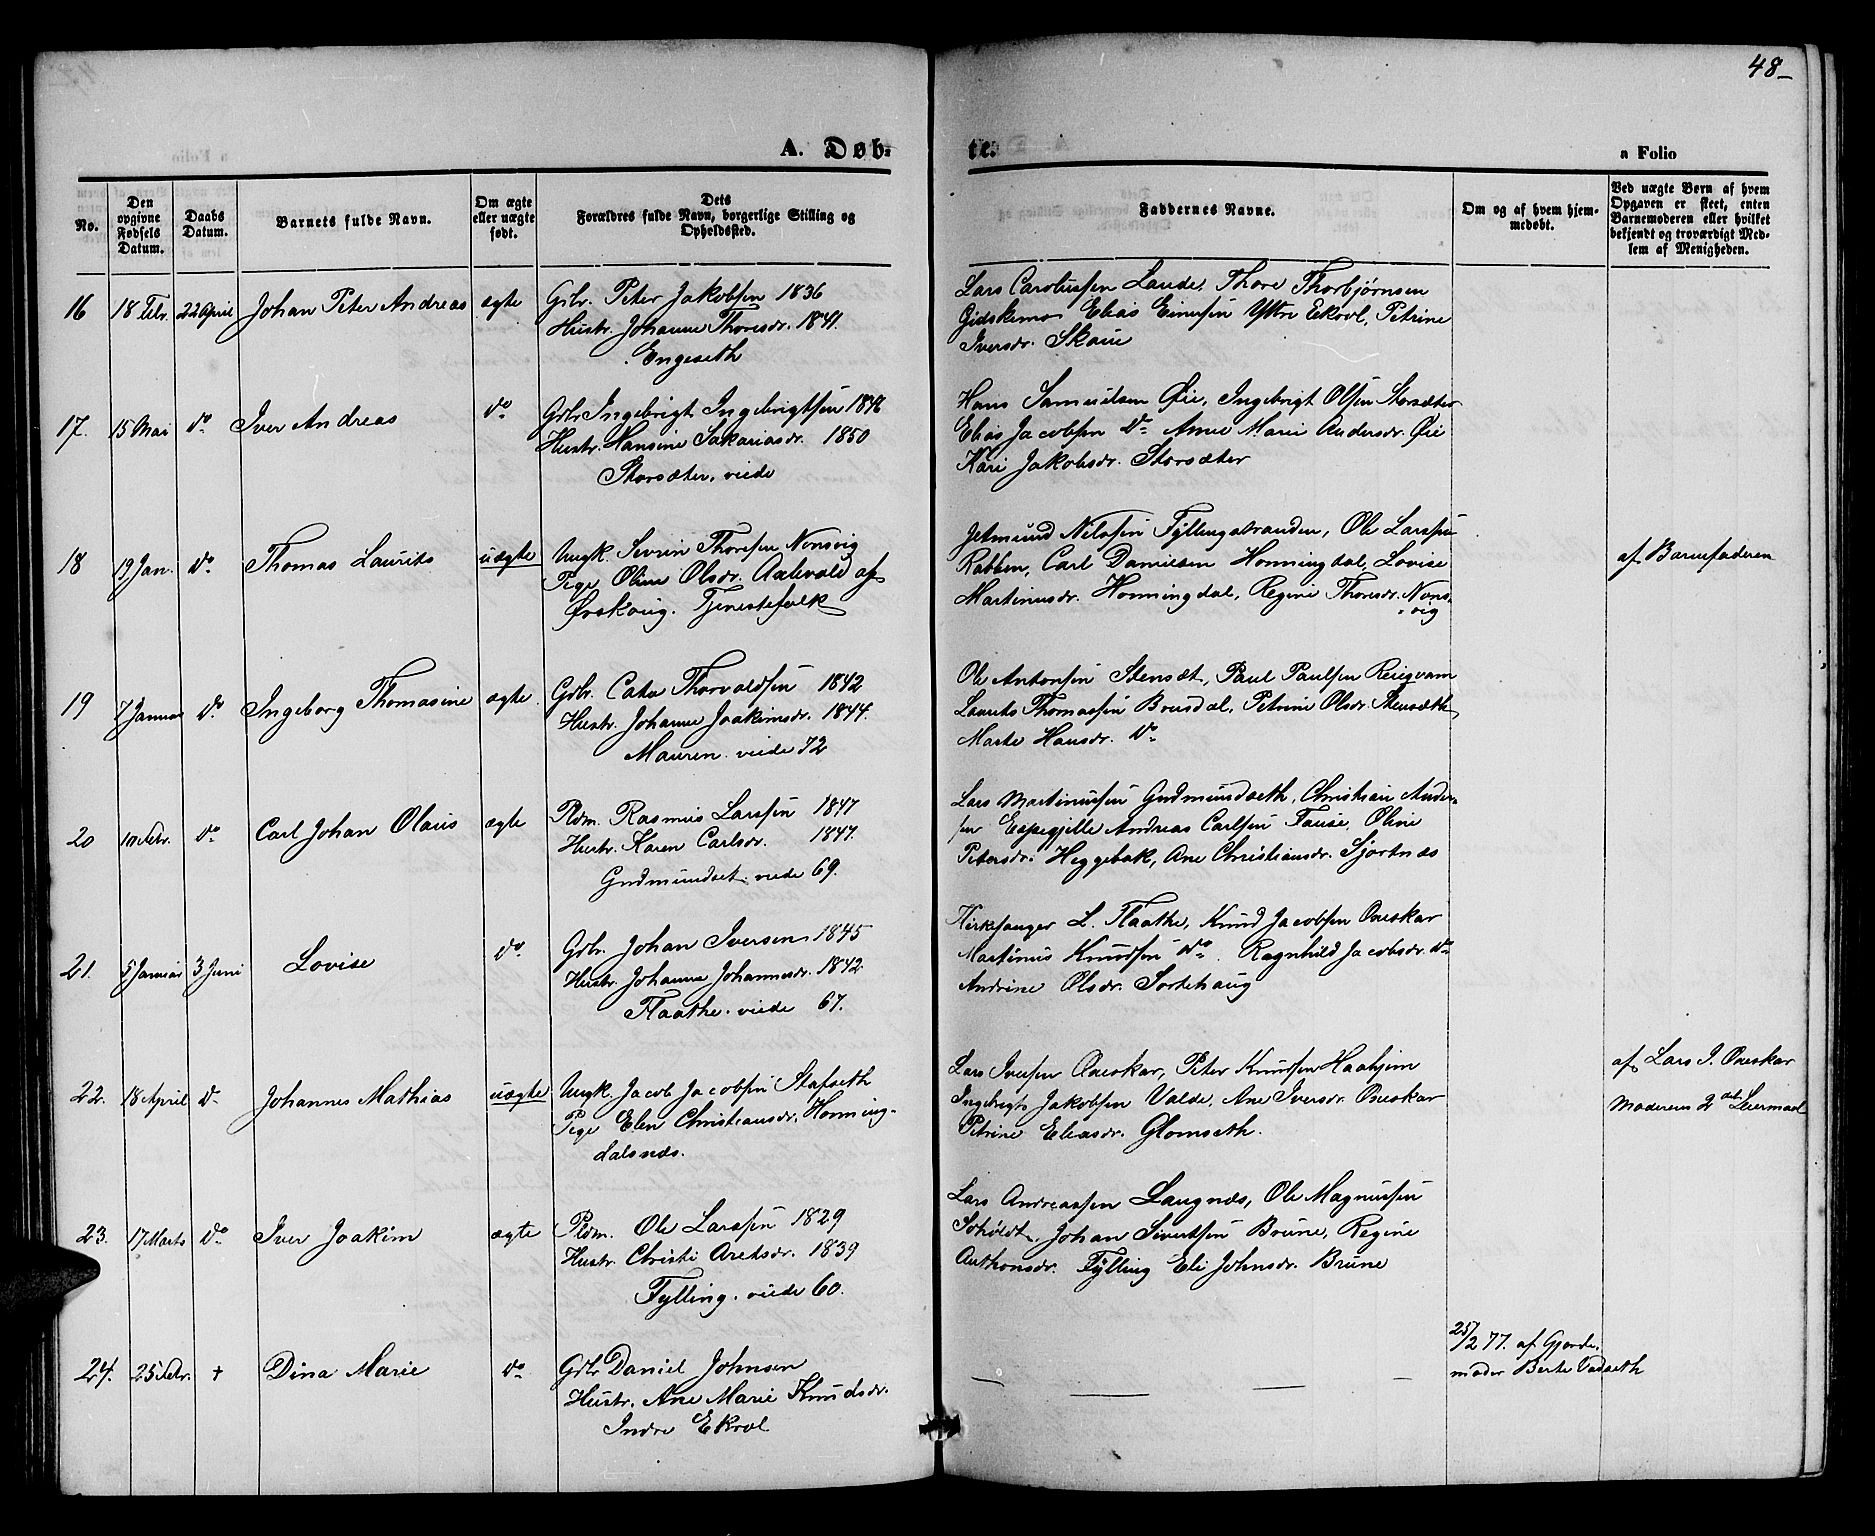 48
A. Døb-
te.
a Folio
No.
Den opgivne Fødsels Datum.
Daabs Datum.
Barnets fulde Navn.
Om ægte eller uægte født.
Dets Forældres fulde Navn, borgerlige Stilling og Opholdssted.
Faddernes Navne.
Om og af hvem hjemmedøbt.
Ved uægte Børn af hvem Opgaven er skeet, enten Barnemoderen eller hvilket bekjendt og troværdigt Medlem af Menigheden.
16 18 Febr. 22 April Johan Peter Andreas ægte Grbr. Peter Jakobsen 1836
Hustr. Johanne Thoresdr. 1841.
Engeseth
Lars Carolussen Lande, Thore Thorbjørnsen
Gidskemo Elias Einersen Yttre Ekrol, Petrine
Iversdr. Skaue
17. 15 Mai do Iver Andreas do Grbr Ingebrigt Ingebrigtsen
Hustr. Hansine Sakariasdr. 1850
Storsæter, viede
Hans Samuelsen Øie, Ingebrigt Olsen Storsæter
Elias Jacobsen do Anne Marie Andersdr. Øie
Kari Jakobsdr. Storsæter
18 19 Jan. do Thomas Laurits uægte Ungk. Sevrin Thoresen Nonsvig
Pige Oline Olsdr. Aalevold af
Ørskoug. Tjenestefolk
Jetmund Nilssen Fyllingsstranden, Ole Larssen
Rabben, Carl Danielsen Honningdal, Lovise
Martinusdr. Honningdal, Regine Thoresdr. Nons-
vig
af Barnefaderen
19 7 Januar do Ingeborg Thomasine ægte Grbr. Cato Thorvaldsen 1842
Hustr. Johanne Joakimsdr. 1844.
Mauren. viede 72
Ole Antonsen Stensæt, Paul Paulsen
Laurits Thomassen Brusdal, Petrine Olsdr. Stensæth
Marte Hansdr. do
20 10 Febr. do Carl Johan Olaus ægte Pldm. Rasmus Larssen 1847
Hustr. Karen Carlsdr. 1847.
Gudmundset. viede 69.
Lars Martinussen Gudmundsæth, Christian Ander-
sen Espegjelle Andreas Carlsen Fause, Oline
Petersdr. Heggebak, Ane Christiansdr. Sjortnes
21. 5 Januar 3 Juni Lovise do Grbr. Johan Iversen 1845
Hustr. Johanne Johannesdr. 1842
Flaathe. viede 67.
Kirksanger L. Flaathe, Knud Jacobsen Oueskar
Martinus Knudsen do. Ragnhild Jacobsdr. do
Andrine Olsdr. Sortehaug
22. 18 April do Johannes Mathias uægte Ungk. Jacob Jacobsen Stafseth
Pige Elen Christiansdr. Honning-
dalsnes.
Lars Iversen Oueskar, Peter Knudsen Haahjem
Ingebrigt Jakobsen Valde, Ane Iversdr. Oueskar
Petrine Eliasdr. Glomseth.
af Lars I. Oueskar
Moderens 2det Leiermaal
23. 17 Marts do Iver Joakim ægte Pldm. Ole Larssen 1829
Hustr. Christi Aretsdr. 1839
Fylling. viede 60.
Lars Andreassen Langnes, Ole Magnussen
Soholdt, Johan Sivertsen Brune, Regine
Anthonsdr. Fylling Eli Johnsdr. Brune
24. 25 Febr. + Dina Marie do Grbr Daniel Johnsen
Hustr. Ane Marie Knudsdr.
Indre Ekrol
25/2 77. af Gjorde-
moder Berte Vadseth